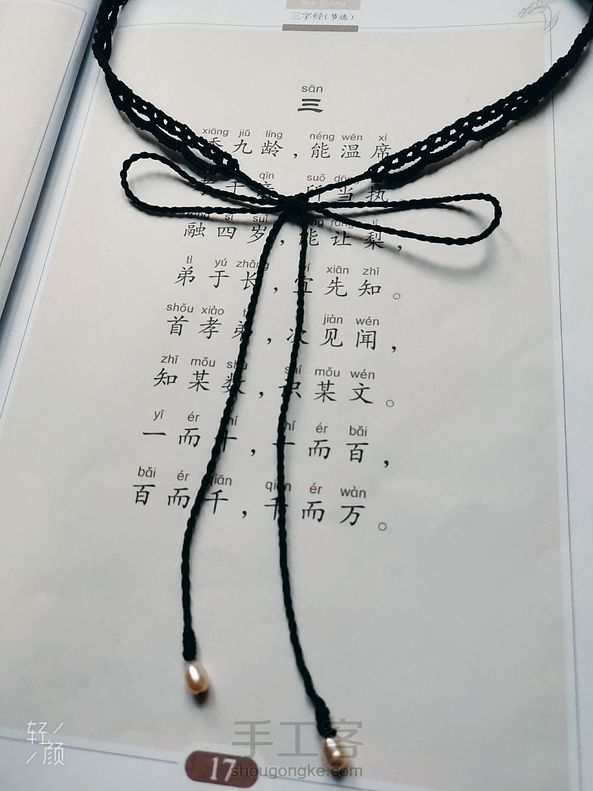 三字经(节选)
sān
三
xiāng jiǔ líng néng wēn xí
香九龄,能温席
qīn suǒ dāng
于亲 所当执
sì suì
融四岁,能让梨,
tì yú zhǎng xiān zhī
弟于长,宜先知。
shǒu xiào jiàn wén
首孝弟,次见闻,
zhī mǒu shù shí mǒu wén
知某数,识某文。
yī ér shí ér bǎi
一而十,十而百,
bǎi ér qiān qiān ér wàn
百而千,千而万。
轻颜
手工客
17
shougongke.com